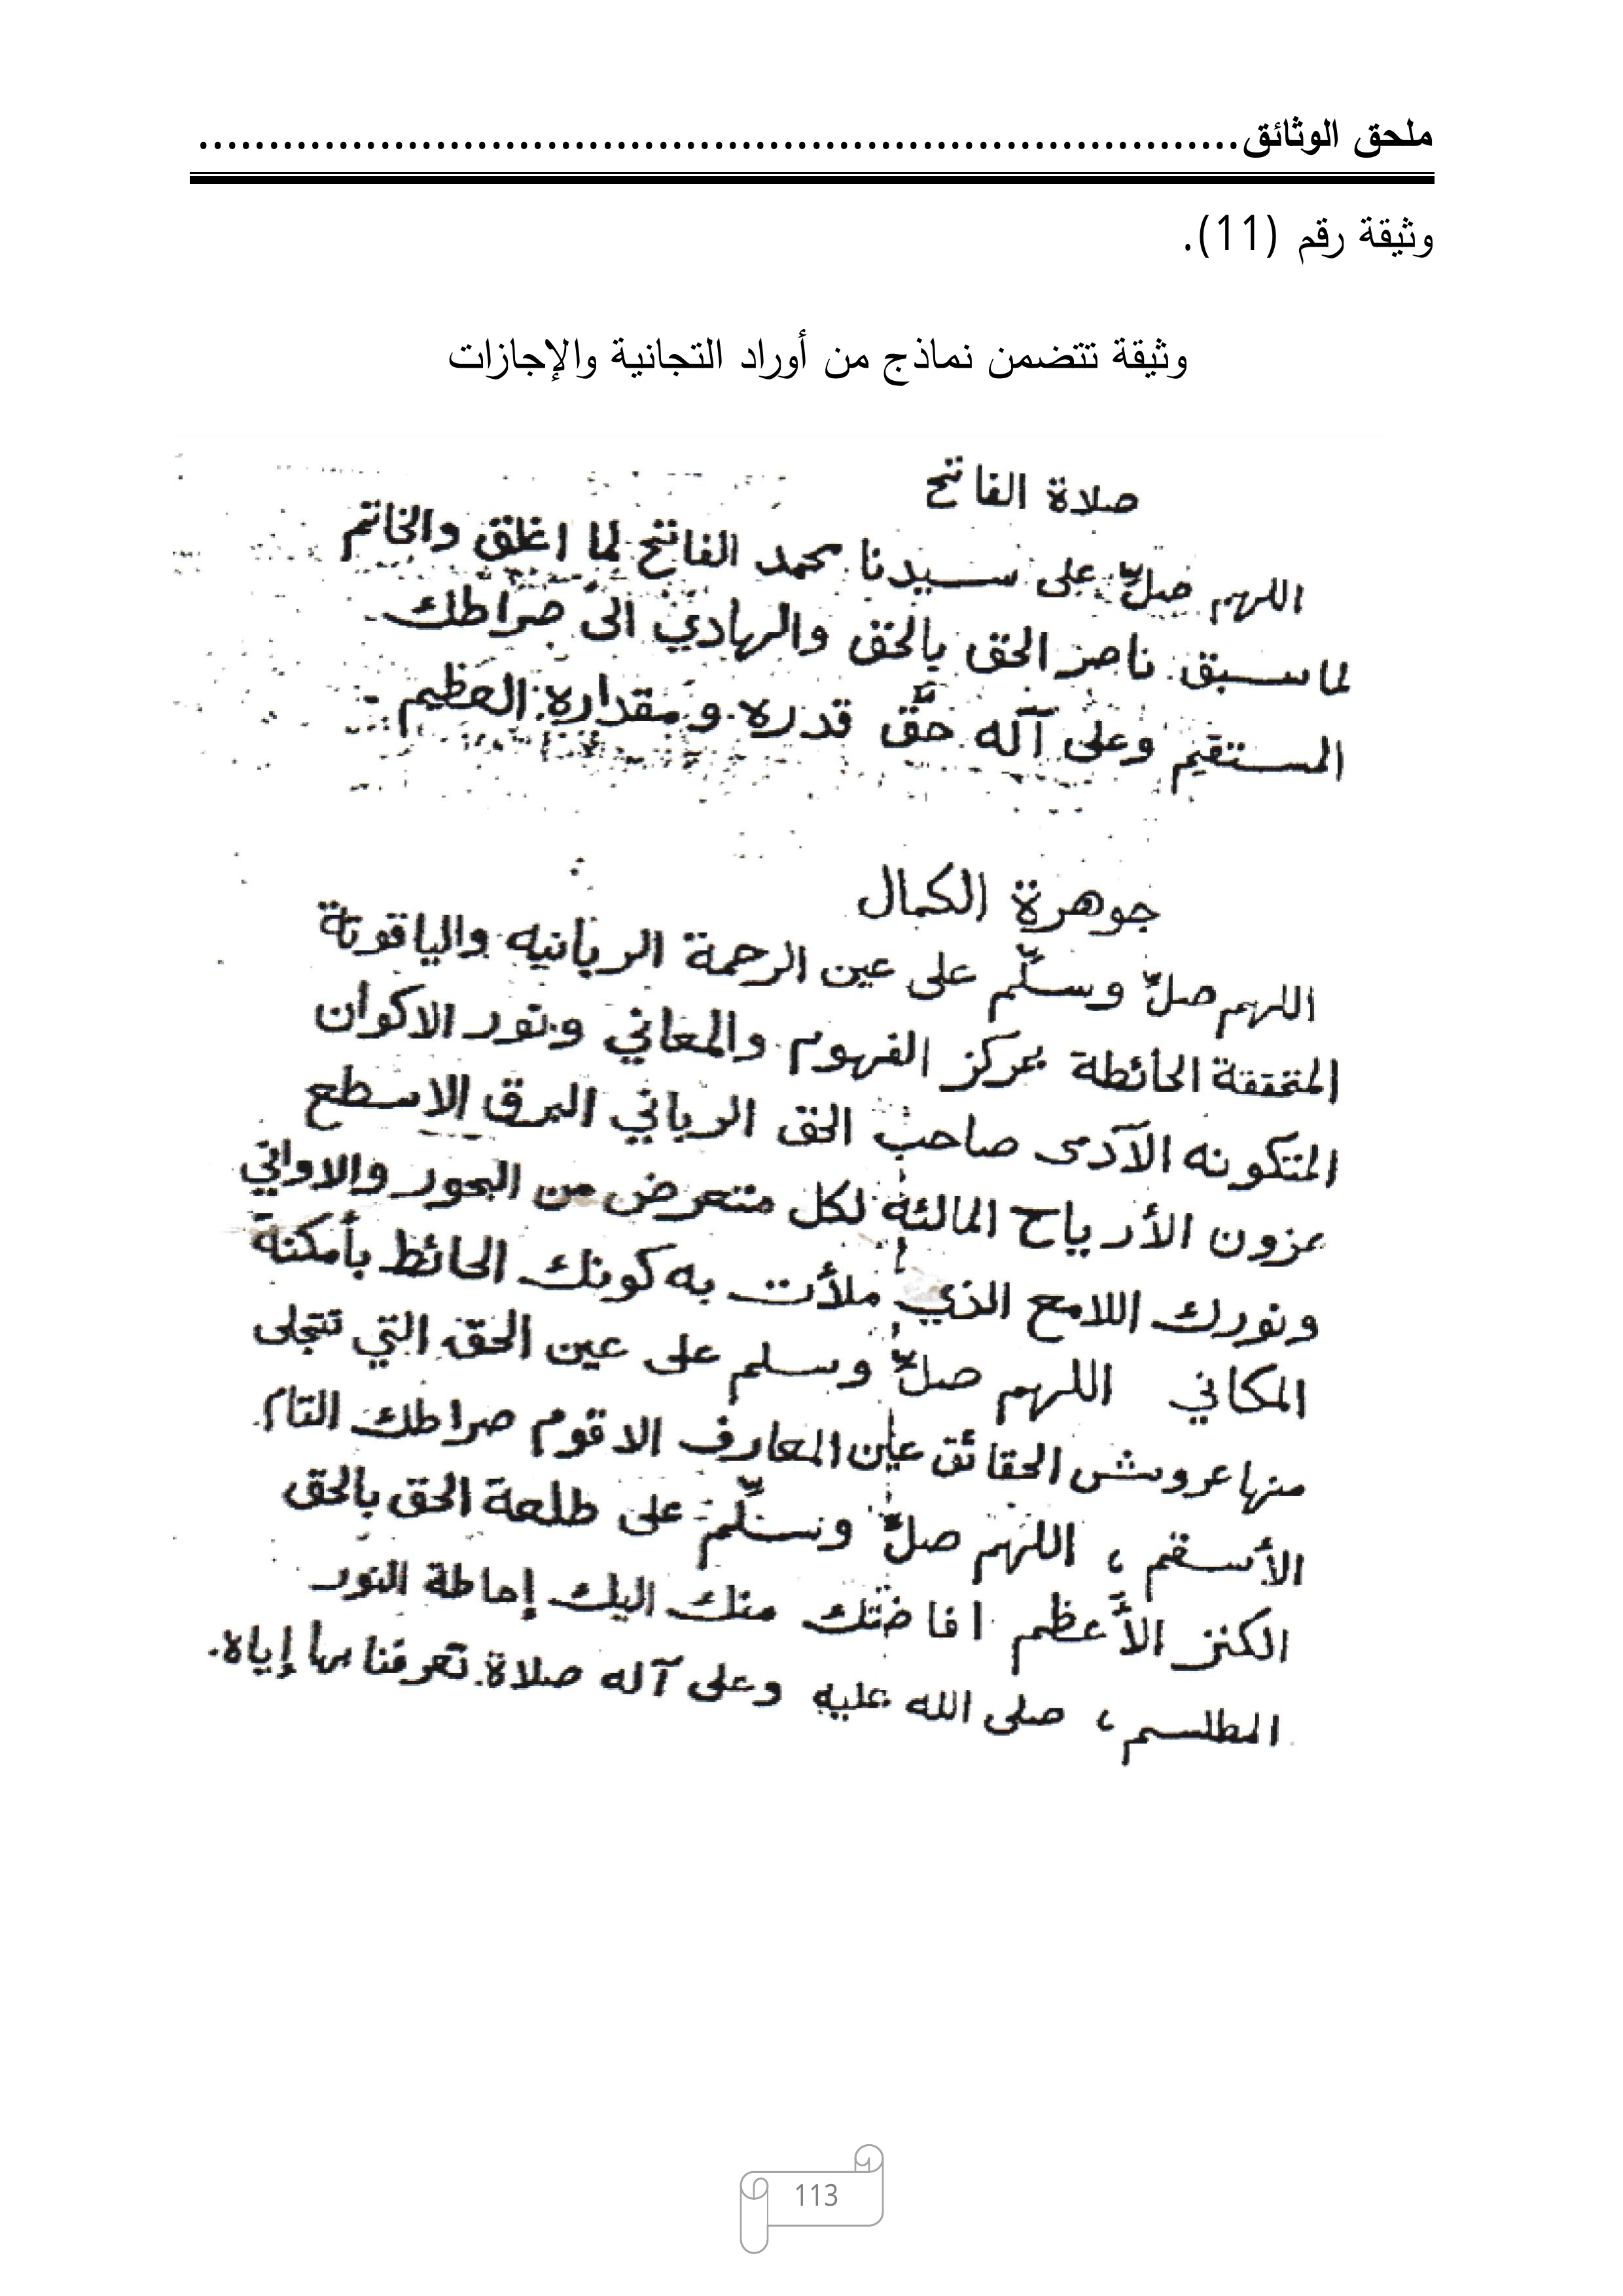 ملحق الوثائق...........................................................................
وثيقة رقم (11).
وثيقة تتضمن نماذج من أوراد التجانية والإجازات
صلاة الفاتح
اللهم صلِّ على سيدنا محمد الفاتح لما اغلق والخاتم
لما سبق ناصر الحق بالحق والهادي الى صراطك
المستقيم وعلى آله حقَّ قدره ومقداره العظيم .
جوهرة الكمال
اللهم صلِّ وسلِّم على عين الرحمة الربانيه والياقوتة
المتحققة الحائطة بمركز الفهوم والمعاني ونور الاكوان
المتكونه الآدمى صاحب الحق الرباني البرق الاسطع
بمزون الأرياح المالئة لكل متعرض من البحور والاواني
ونورك اللامع الذي ملأت به كونك الحائط بأمكنة
المكاني اللهم صلِّ وسلم على عين الحق التي تتجلى
منها عروش الحقائق عين المعارف الاقوم صراطك التام
الأسقم ، اللهم صلِّ وسلِّم على طلعة الحق بالحق
الكنز الأعظم افاضتك منك اليك إحاطة النور
المطلسم ، صلى الله عليه وعلى آله صلاة تعرفنا بها إياه.
113